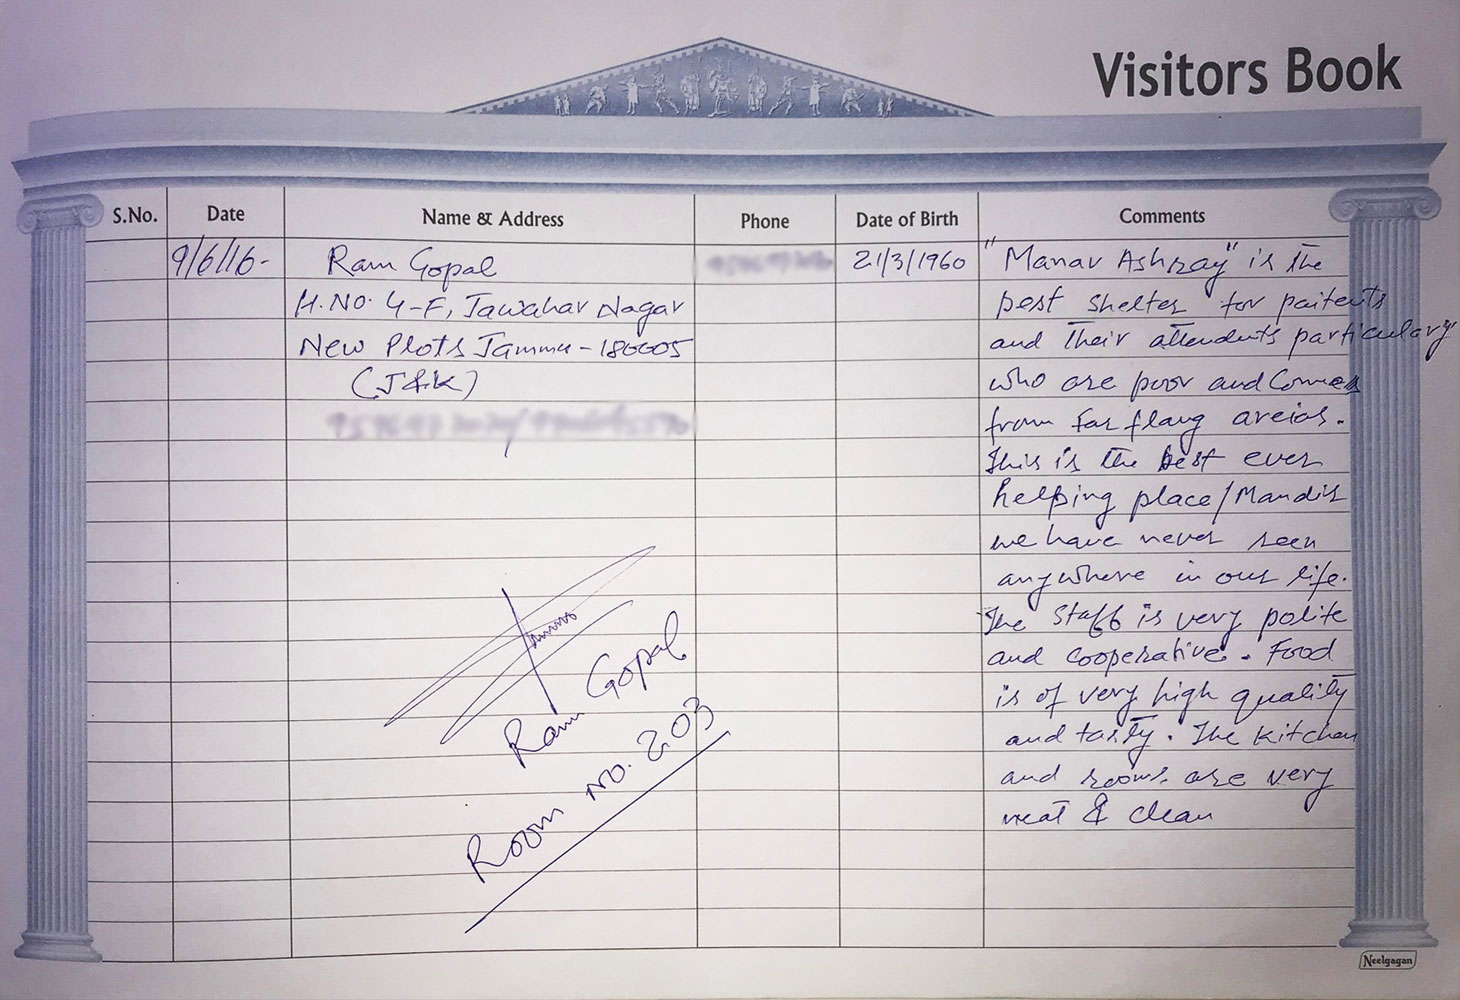 Visitors Book
S.No. Date Name & Address Phone Date of Birth Comments
9/6/16- Ram Gopal 21/3/1960 "Manav Ashray" is the
H.No. 4-F, Jawahar Nagar
New Plots Jammu - 180005
(J&K)
best shelter for paitents
and their attendents particulary
who are poor and Comes
from far flang areias.
This is the best ever
helping place/Mandir
we have never seen
anywhere in our life.
The staff is very polite
and cooperative. Food
is of very high quality
and tasty. The Kitchen
and rooms are very
neat & clean
Ram Gopal
Room No. 203
Neelgagan